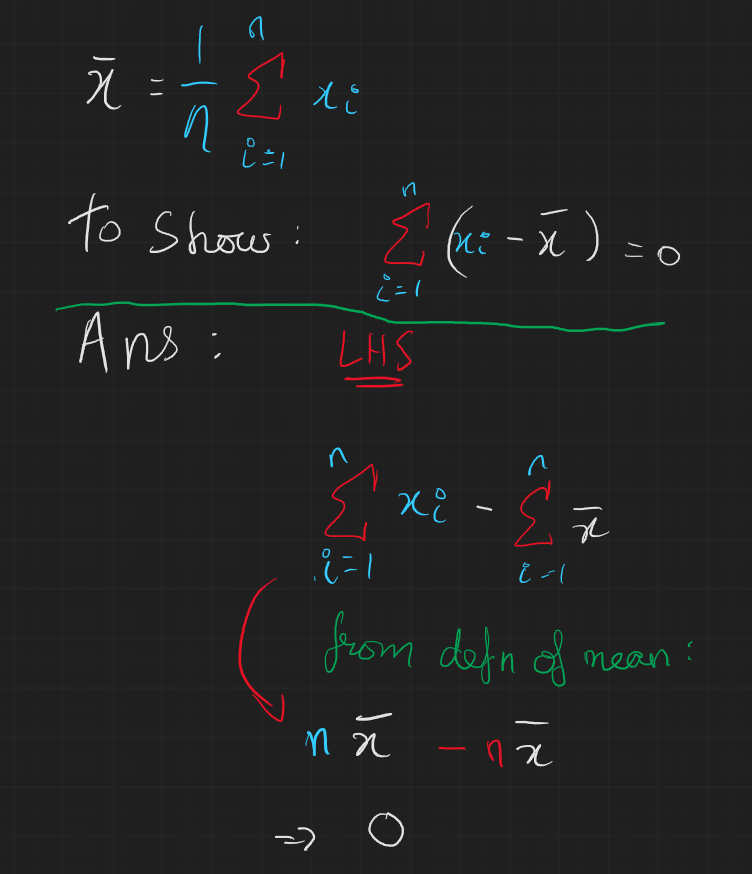 x̄ = 1/n ∑_{i=1}^{n} x_i
To Show: ∑_{i=1}^{n} (x_i - x̄) = 0
Ans: LHS
∑_{i=1}^{n} x_i - ∑_{i=1}^{n} x̄
from defn of mean:
n x̄ - n x̄
⇒ 0